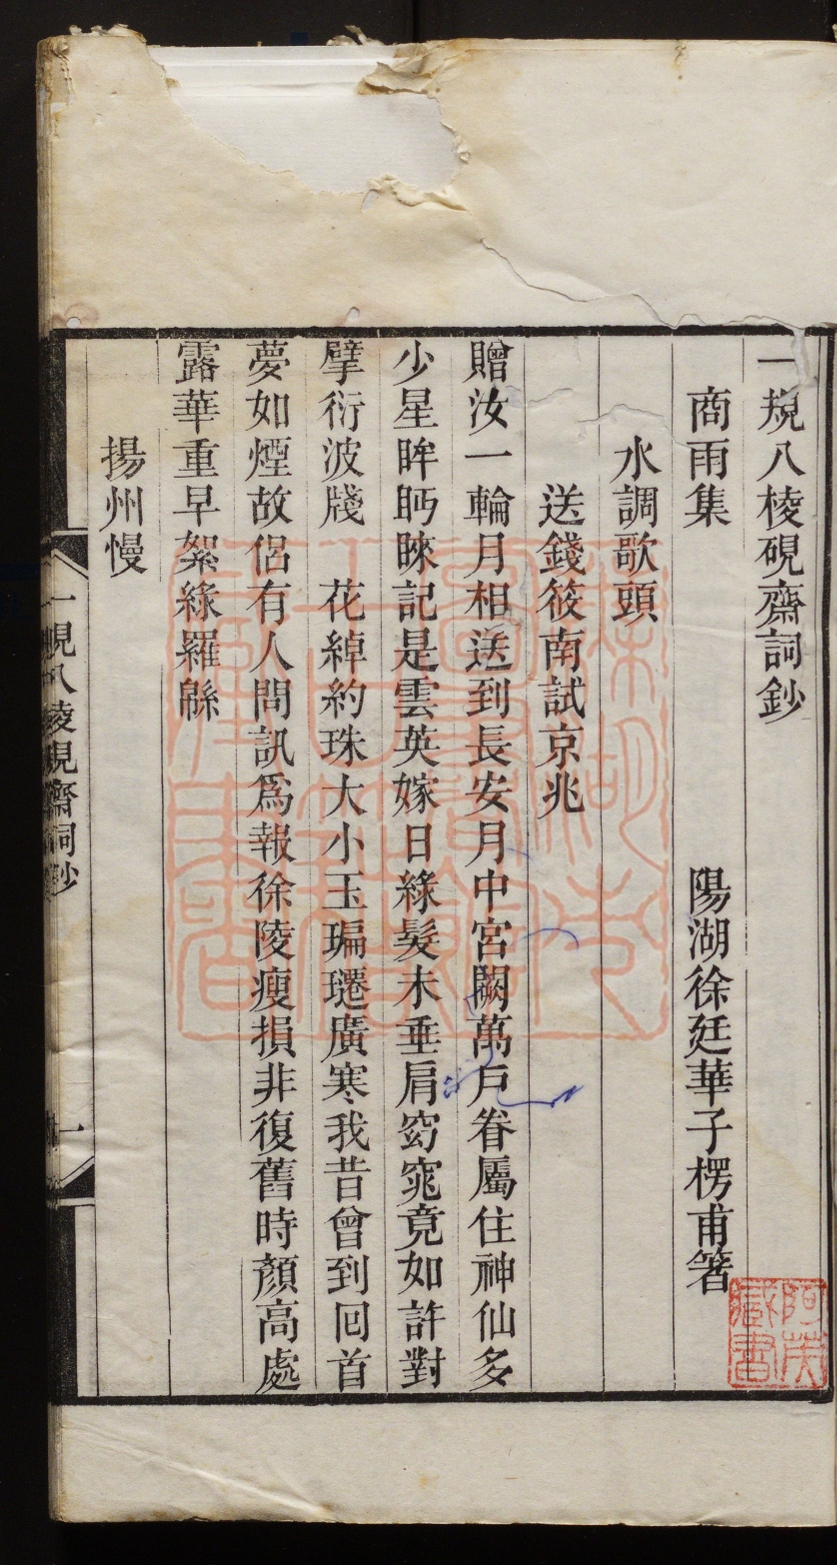 一規八棱硯齋詞鈔
商雨集　陽湖徐廷華子楞甫箸
水調歌頭
送錢筱南試京兆
贈汝一輪月相送到長安月中宮闕萬戶眷屬住神仙多
少星眸眄睞記是雲英嫁日綠髮未垂肩窈窕竟如許對
擘衍波牋　花綽約珠大小玉㻞璶廣寒我昔曾到回首
夢如煙故侶有人問訊爲報徐陵瘦損非復舊時顏高處
露華重早絮綠羅緜
揚州慢
一規八棱硯齋詞鈔
一
藏書